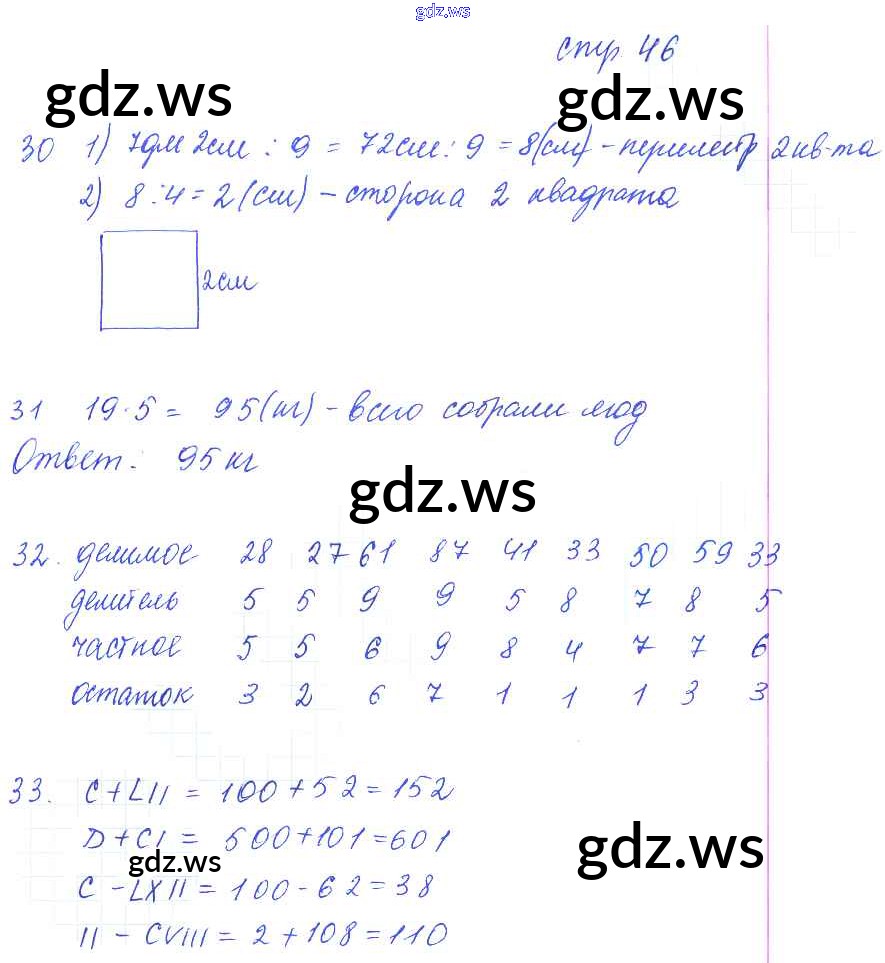 gdz.ws
стр. 46
gdz.ws gdz.ws
30 1) 7дм 2см : 9 = 72см : 9 = 8(см) - периметр 2 кв-та
2) 8 : 4 = 2 (см) - сторона 2 квадрата
2см
31 19 · 5 = 95(кг) - всего собрали ягод
Ответ: 95 кг
gdz.ws
32. делимое 28 27 61 87 41 33 50 59 33
делитель 5 5 9 9 5 8 7 8 5
частное 5 5 6 9 8 4 7 7 6
остаток 3 2 6 7 1 1 1 3 3
33. C + LII = 100 + 52 = 152
D + CI = 500 + 101 = 601
gdz.ws gdz.ws
C - LXII = 100 - 62 = 38
II - CVIII = 2 + 108 = 110